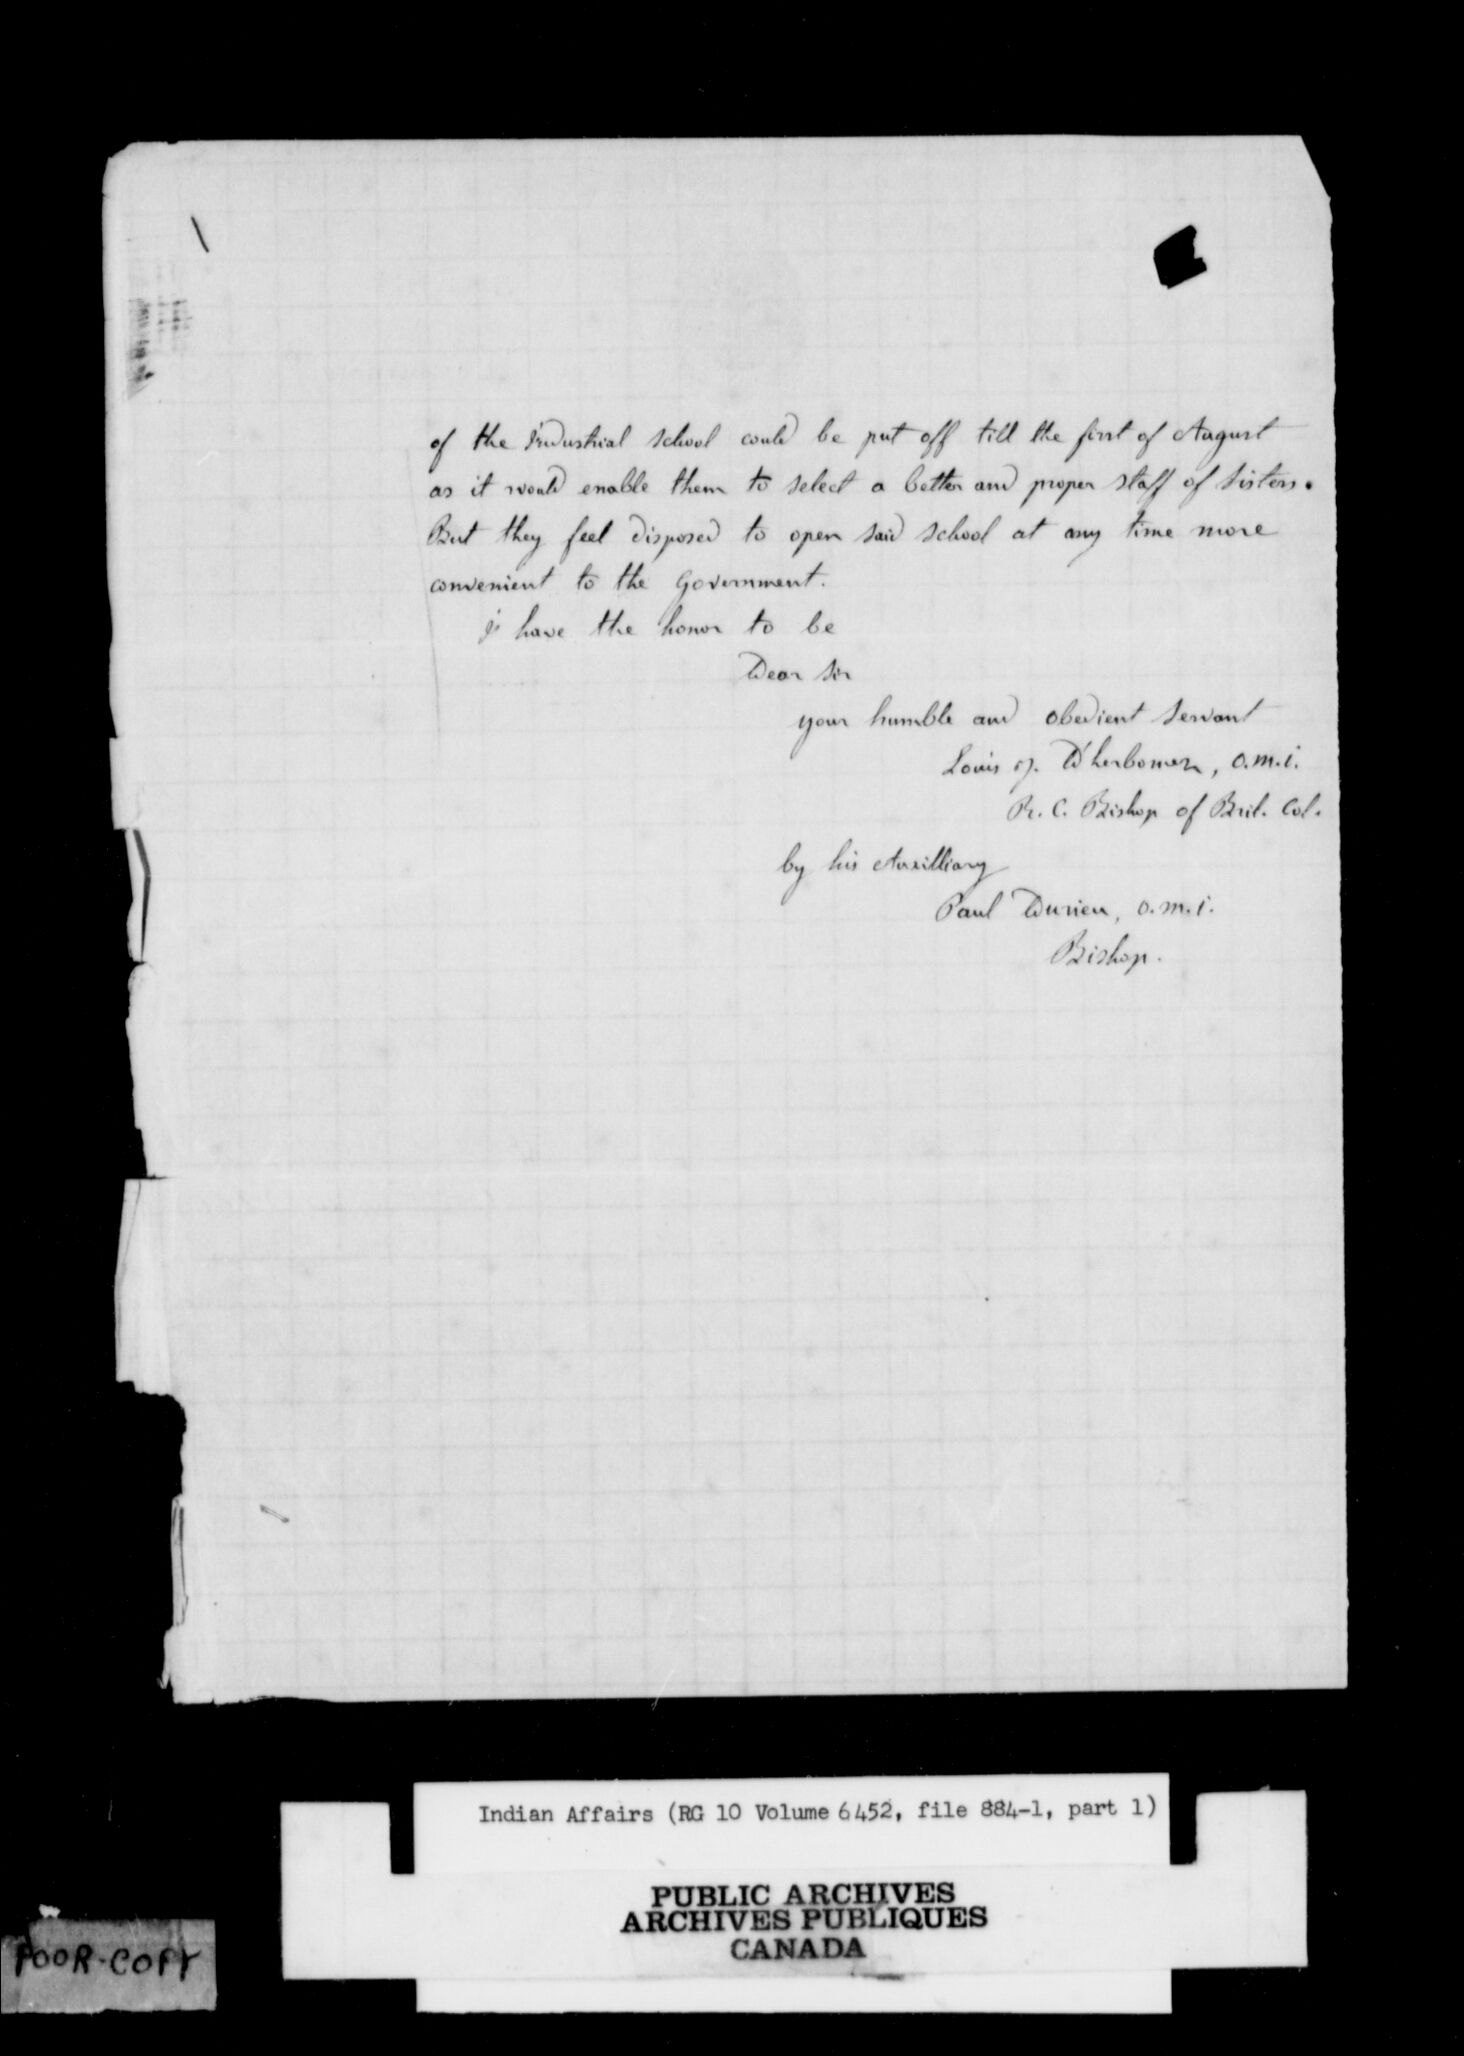 of the Industrial school could be put off till the first of August
as it would enable them to select a better and proper staff of Sisters.
But they feel disposed to open said school at any time more
convenient to the Government.
I have the honor to be
Dear Sir
your humble and obedient servant
Louis J. D'herbomez, o.m.i.
R. C. Bishop of Brit. Col.
by his Auxilliary
Paul Durieu, o.m.i.
Bishop.
Indian Affairs (RG 10 Volume 6452, file 884-1, part 1)
PUBLIC ARCHIVES
ARCHIVES PUBLIQUES
CANADA
POOR-COPY